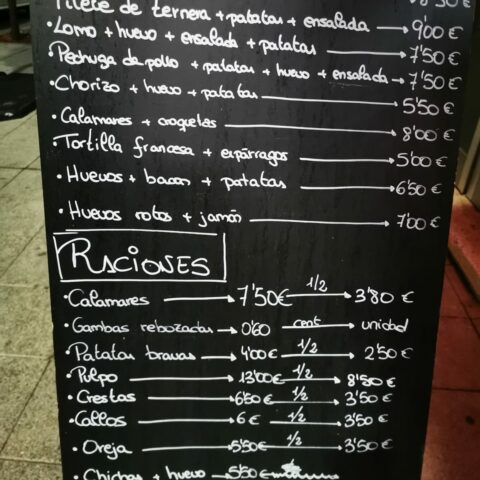 Filete de ternera + patatas + ensalada → 9'00 €
• Lomo + huevo + ensalada + patatas → 7'50 €
Pechuga de pollo + patatas + huevo + ensalada → 7'50 €
• Chorizo + huevo + patatas → 5'50 €
• Calamares + croquetas → 8'00 €
• Tortilla francesa + espárragos → 5'00 €
• Huevos + bacon + patatas → 6'50 €
• Huevos rotos + jamón → 7'00 €
RACIONES
• Calamares → 7'50 € 1/2 → 3'80 €
• Gambas rebozadas → 0'60 cent → unidad
• Patatas bravas → 4'00 € 1/2 → 2'50 €
• Pulpo → 13'00 € 1/2 → 8'50 €
• Crestas → 6'50 € 1/2 → 3'50 €
• Callos → 6 € 1/2 → 3'50 €
• Oreja → 5'50 € 1/2 → 3'50 €
• Chichas + huevo → 5'50 €